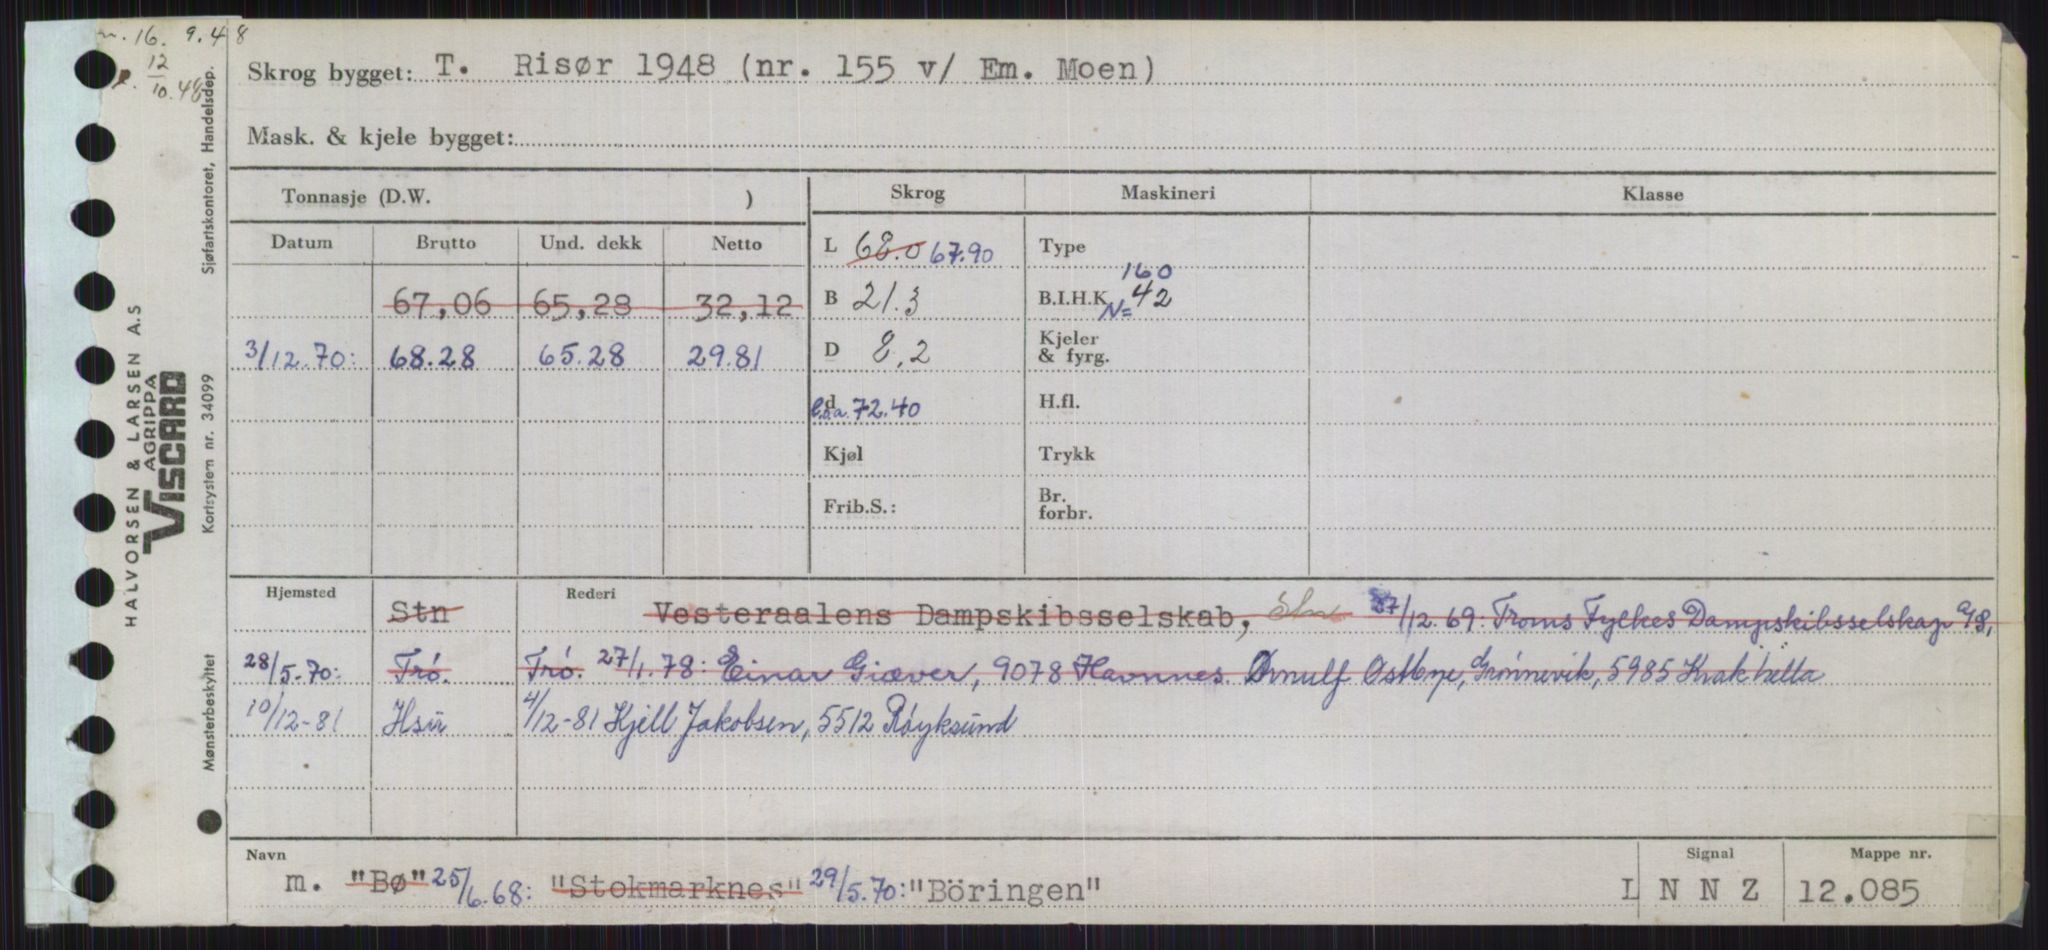 m. 16. 9. 48
p. 12/10. 48
Skrog bygget: T. Risør 1948 (nr. 155 v/ Em. Moen)
Mask. & kjele bygget:
Tonnasje (D.W. )
Skrog
Maskineri
Klasse
Datum Brutto Und. dekk Netto
67,06 65,28 32,12
3/12.70: 68.28 65.28 29.81
L 68.0 67.90
B 21.3
D 8,2
d l.o.a. 72.40
Kjøl
Frib.S.:
Type
160
B.I.H.K. N= 42
Kjeler
& fyrg.
H.fl.
Trykk
Br.
forbr.
Hjemsted Rederi
Stn Vesteraalens Dampskibsselskab, Stn 27/12.69: Troms Fylkes Dampskibsselskap A/S,
28/5.70: Trö. Trö. 27/1.78: Einar Giæver, 9078 Havnnes. Ørnulf Østbye, Grønnevik, 5985 Krakhella
10/12-81 Hsü 4/12-81 Kjell Jakobsen, 5512 Röyksund
Navn
m. "Bø" 25/6.68: "Stokmarknes" 29/5.70: "Böringen"
Signal
L N N Z
Mappe nr.
12.085
HALVORSEN & LARSEN A.S
AGRIPPA
VISCARD
Sjøfartskontoret, Handelsdep.
Kortsystem nr. 34099
Mønsterbeskyttet